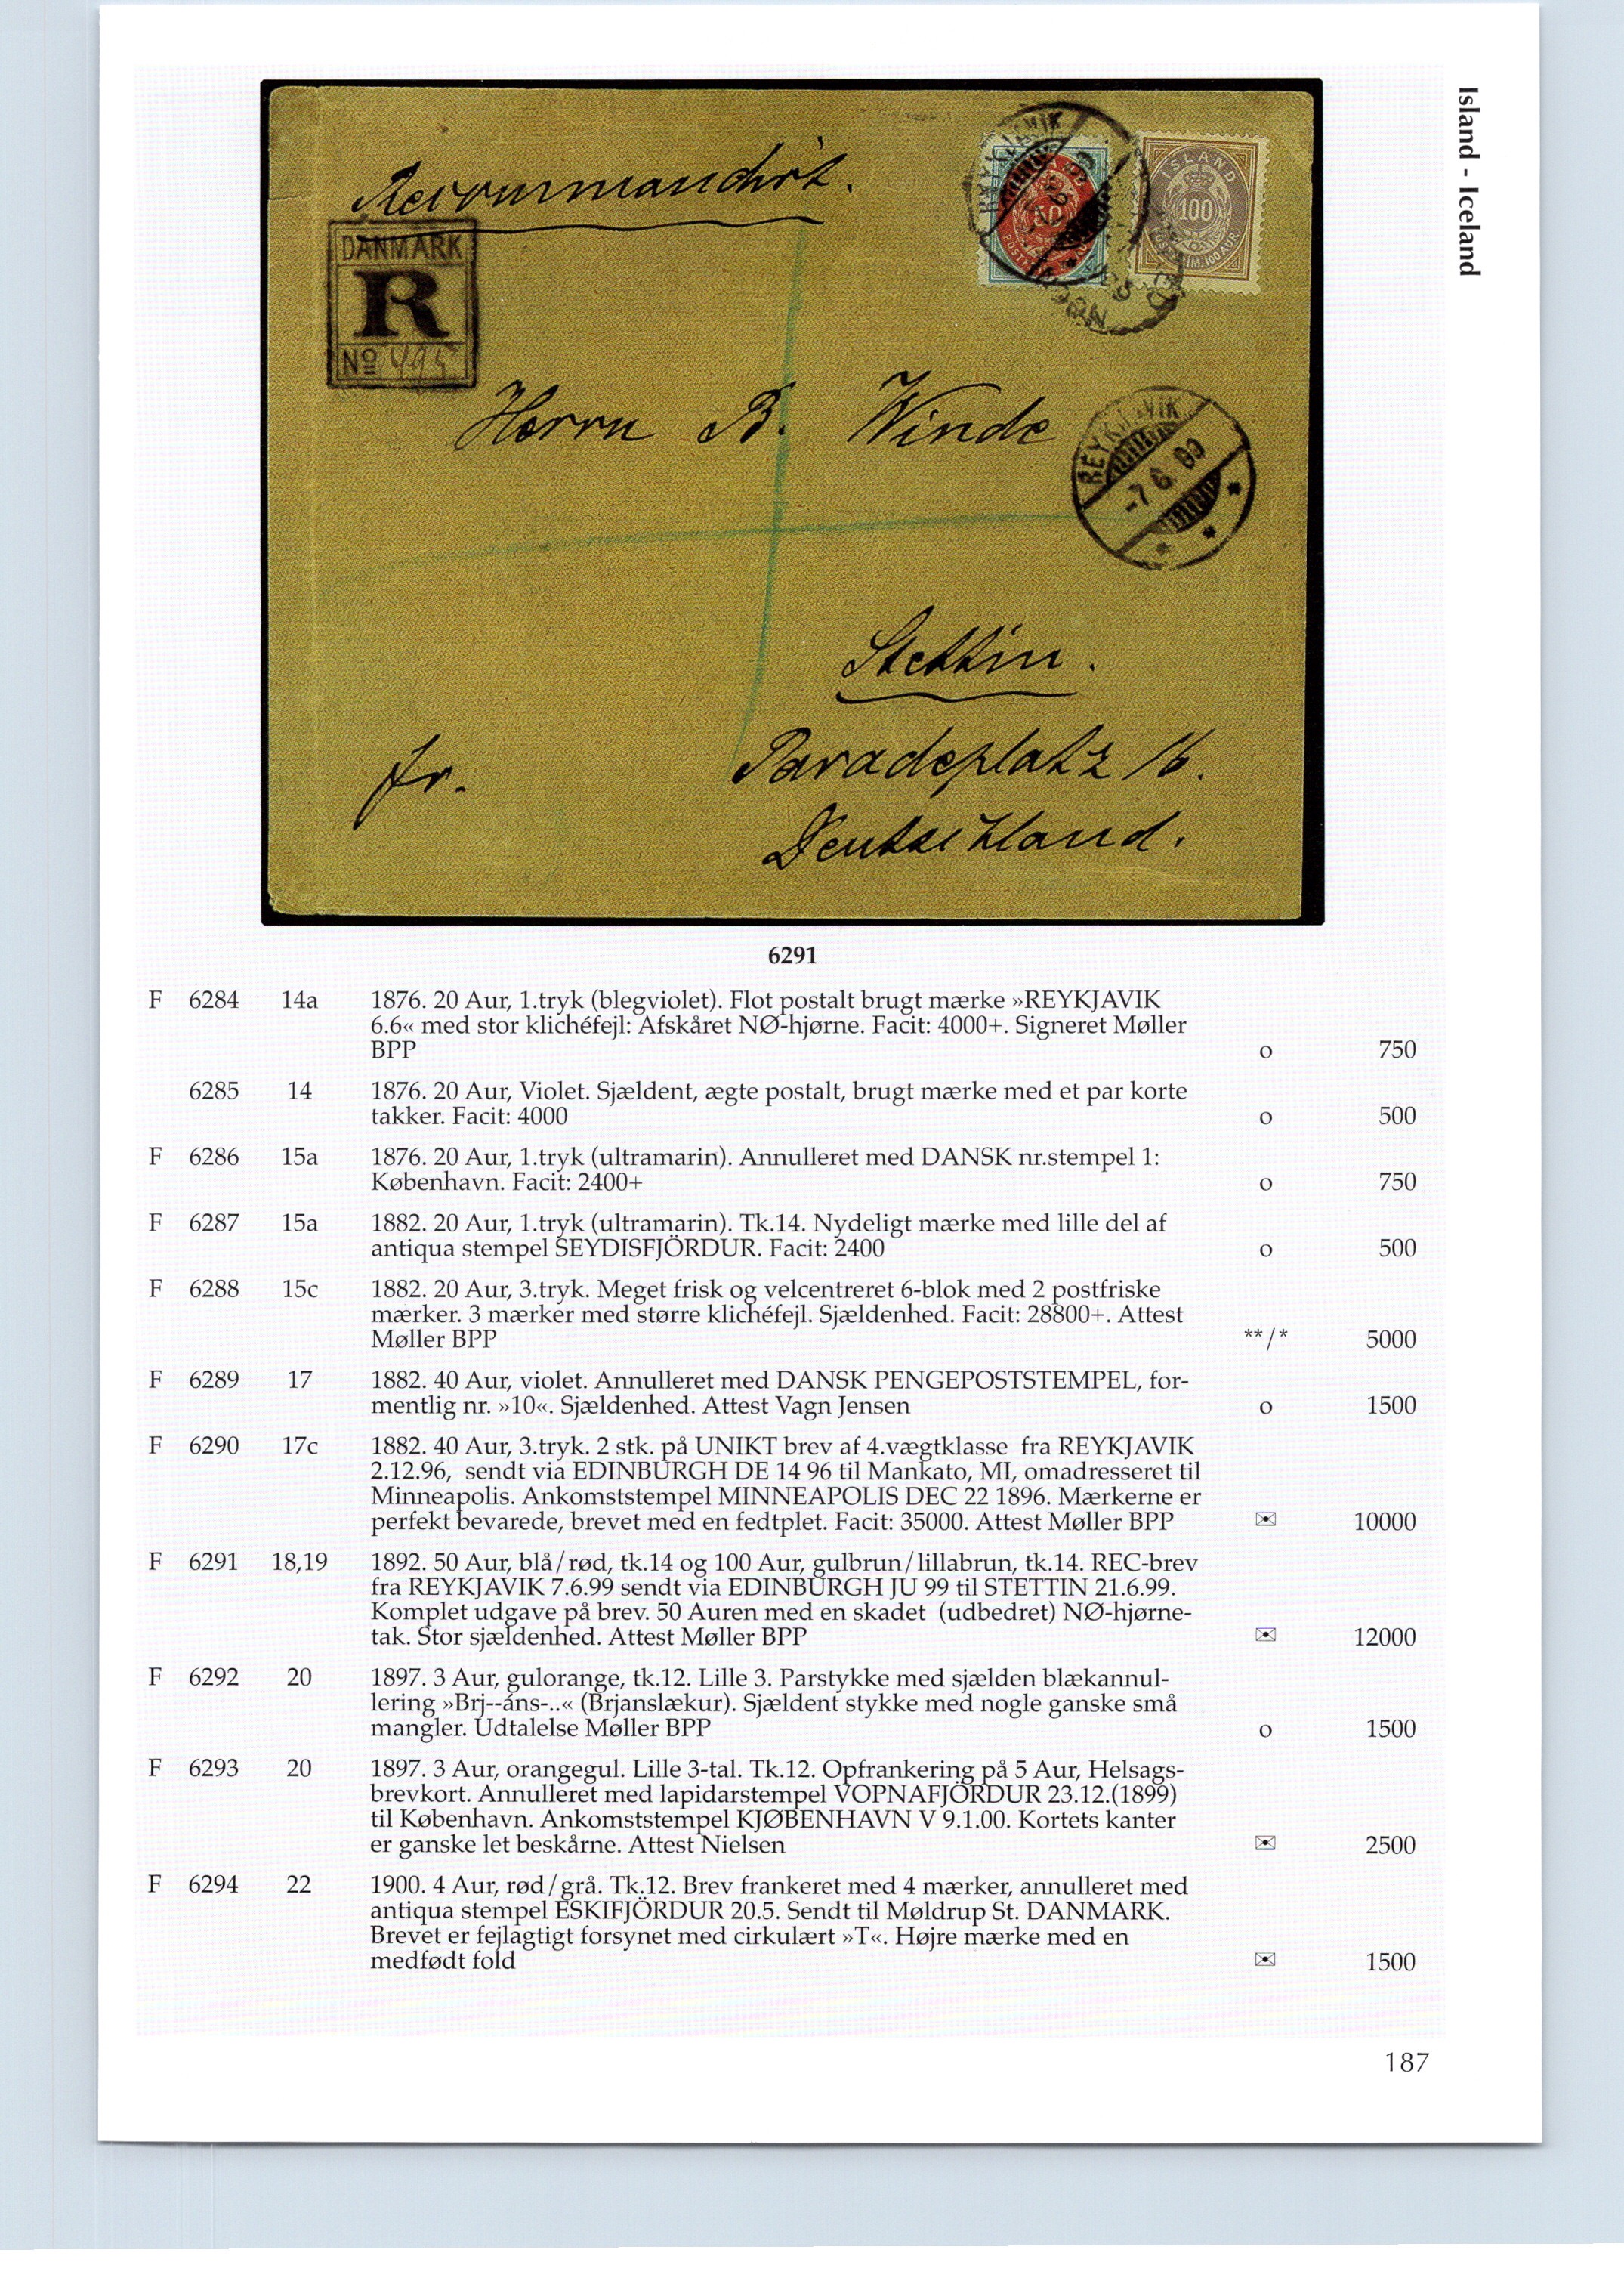 Island - Iceland
Recommandirt.
DANMARK
R
No 495
REYKJAVIK
ISLAND
100
50
Herrn B. Winde
REYKJAVIK
-7 6 99
Stettin.
fr.
Paradeplatz 16.
Deutschland.
6291
F 6284 14a 1876. 20 Aur, 1.tryk (blegviolet). Flot postalt brugt mærke »REYKJAVIK
6.6« med stor klichéfejl: Afskåret NØ-hjørne. Facit: 4000+. Signeret Møller
BPP o 750
6285 14 1876. 20 Aur, Violet. Sjældent, ægte postalt, brugt mærke med et par korte
takker. Facit: 4000 o 500
F 6286 15a 1876. 20 Aur, 1.tryk (ultramarin). Annulleret med DANSK nr.stempel 1:
København. Facit: 2400+ o 750
F 6287 15a 1882. 20 Aur, 1.tryk (ultramarin). Tk.14. Nydeligt mærke med lille del af
antiqua stempel SEYDISFJÖRDUR. Facit: 2400 o 500
F 6288 15c 1882. 20 Aur, 3.tryk. Meget frisk og velcentreret 6-blok med 2 postfriske
mærker. 3 mærker med større klichéfejl. Sjældenhed. Facit: 28800+. Attest
Møller BPP **/* 5000
F 6289 17 1882. 40 Aur, violet. Annulleret med DANSK PENGEPOSTSTEMPEL, for-
mentlig nr. »10«. Sjældenhed. Attest Vagn Jensen o 1500
F 6290 17c 1882. 40 Aur, 3.tryk. 2 stk. på UNIKT brev af 4.vægtklasse fra REYKJAVIK
2.12.96, sendt via EDINBURGH DE 14 96 til Mankato, MI, omadresseret til
Minneapolis. Ankomststempel MINNEAPOLIS DEC 22 1896. Mærkerne er
perfekt bevarede, brevet med en fedtplet. Facit: 35000. Attest Møller BPP ✉ 10000
F 6291 18,19 1892. 50 Aur, blå/rød, tk.14 og 100 Aur, gulbrun/lillabrun, tk.14. REC-brev
fra REYKJAVIK 7.6.99 sendt via EDINBURGH JU 99 til STETTIN 21.6.99.
Komplet udgave på brev. 50 Auren med en skadet (udbedret) NØ-hjørne-
tak. Stor sjældenhed. Attest Møller BPP ✉ 12000
F 6292 20 1897. 3 Aur, gulorange, tk.12. Lille 3. Parstykke med sjælden blækannul-
lering »Brj--áns-..« (Brjanslækur). Sjældent stykke med nogle ganske små
mangler. Udtalelse Møller BPP o 1500
F 6293 20 1897. 3 Aur, orangegul. Lille 3-tal. Tk.12. Opfrankering på 5 Aur, Helsags-
brevkort. Annulleret med lapidarstempel VOPNAFJÖRDUR 23.12.(1899)
til København. Ankomststempel KJØBENHAVN V 9.1.00. Kortets kanter
er ganske let beskårne. Attest Nielsen ✉ 2500
F 6294 22 1900. 4 Aur, rød/grå. Tk.12. Brev frankeret med 4 mærker, annulleret med
antiqua stempel ESKIFJÖRDUR 20.5. Sendt til Møldrup St. DANMARK.
Brevet er fejlagtigt forsynet med cirkulært »T«. Højre mærke med en
medfødt fold ✉ 1500
187